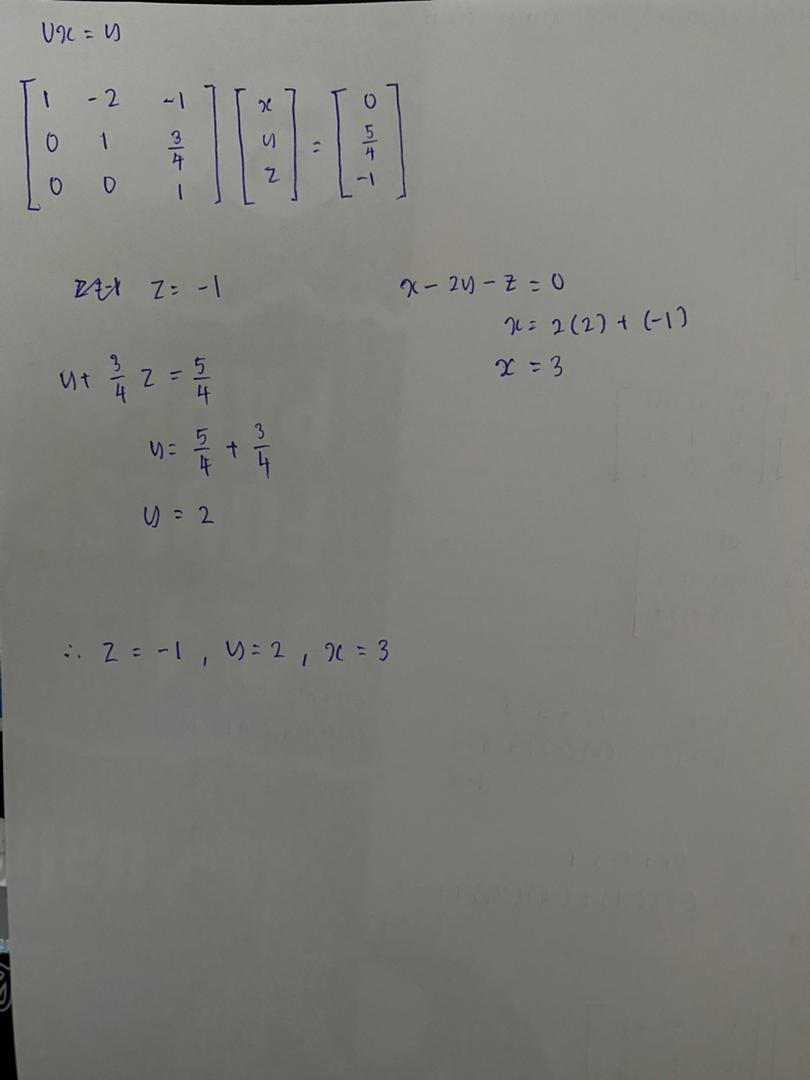 Ux = y
[ 1 -2 -1 ] [ x ] = [ 0 ]
[ 0 1 3/4 ] [ y ] = [ 5/4 ]
[ 0 0 1 ] [ z ] = [ -1 ]
z = -1
y + 3/4 z = 5/4
y = 5/4 + 3/4
y = 2
x - 2y - z = 0
x = 2(2) + (-1)
x = 3
∴ z = -1 , y = 2 , x = 3